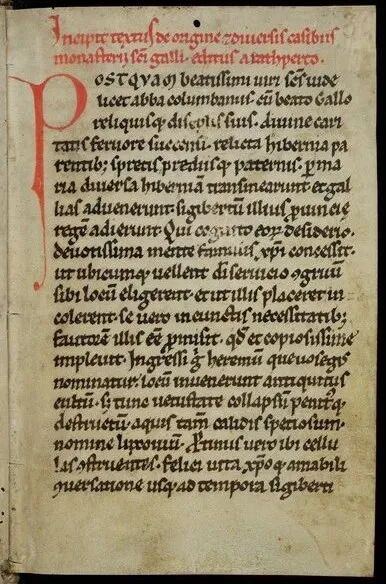 Incipit textus de origine & diversis casibus
monasterii sc̄i galli. editus a Rathperto.
POSTQVAM beatissimi viri scs vide
licet abba columbanus. cū beato Gallo
reliquisq; discip̄lis suis. divine cari
tatis fervore succensi. relicta hibernia pa
rentib; spretis prediisq; paternis. p ma
ria diversa hiberniā transmearunt et gal
lias advenerunt. sigibertū illius p̄vincię
regē adierunt. Qui cognito eor desiderio.
devotissima mente famulis xp̄i concessit.
ut ubicumq; vellent di servicio ꝯgruū
sibi locū eligerent. et ut illis placeret in-
colerent. se vero in cunctis necessitatib;
fautorē illis eē p̄misit. qd̄ et copiosissime
implevit. Ingressi g̊ heremū que vosegus
nominatur. locū invenerunt antiquitus
cultū. s; tunc vetustate collapsū penitq;
destructū. aquis tam̄ calidis speciosum.
nomine luxoviū. P̄tinus vero ibi cellu
las ꝯstruentes. felici vita xp̄oq; amabili
ꝯversatione usq; ad tempora sigiberti